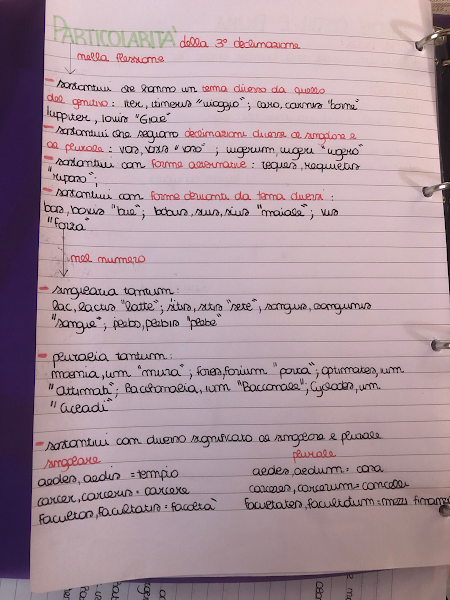 PARTICOLARITA' della 3° declinazione
nella flessione
- sostantivi che hanno un tema diverso da quello
del genitivo: iter, itineris "viaggio"; caro, carnis "carne"
Iuppiter, Iovis "Giove"
- sostantivi che seguono declinazioni diverse al singolare e
al plurale: vas, vasis "vaso"; iugerum, iugeri "iugero"
- sostantivi con forme alternative: requies, requietis
"riposo";
- sostantivi con forme derivanti da temi diversi:
bos, bovis "bue"; bobus, sus, suis "maiale"; vis
"forza"
nel numero
- singularia tantum:
lac, lactis "latte"; sitis, sitis "sete"; sanguis, sanguinis
"sangue"; plebs, plebis "plebe"
- pluralia tantum:
moenia, ium "mura"; fores, forium "porta"; optimates, ium
"Ottimati"; Bacchanalia, ium "Baccanale"; Cyclades, um
"Cicladi"
- sostantivi con diverso significato al singolare e plurale
singolare plurale
aedes, aedis = tempio aedes, aedium = casa
carcer, carceris = carcere carceres, carcerum = cancelli
facultas, facultatis = facoltà facultates, facultatum = mezzi